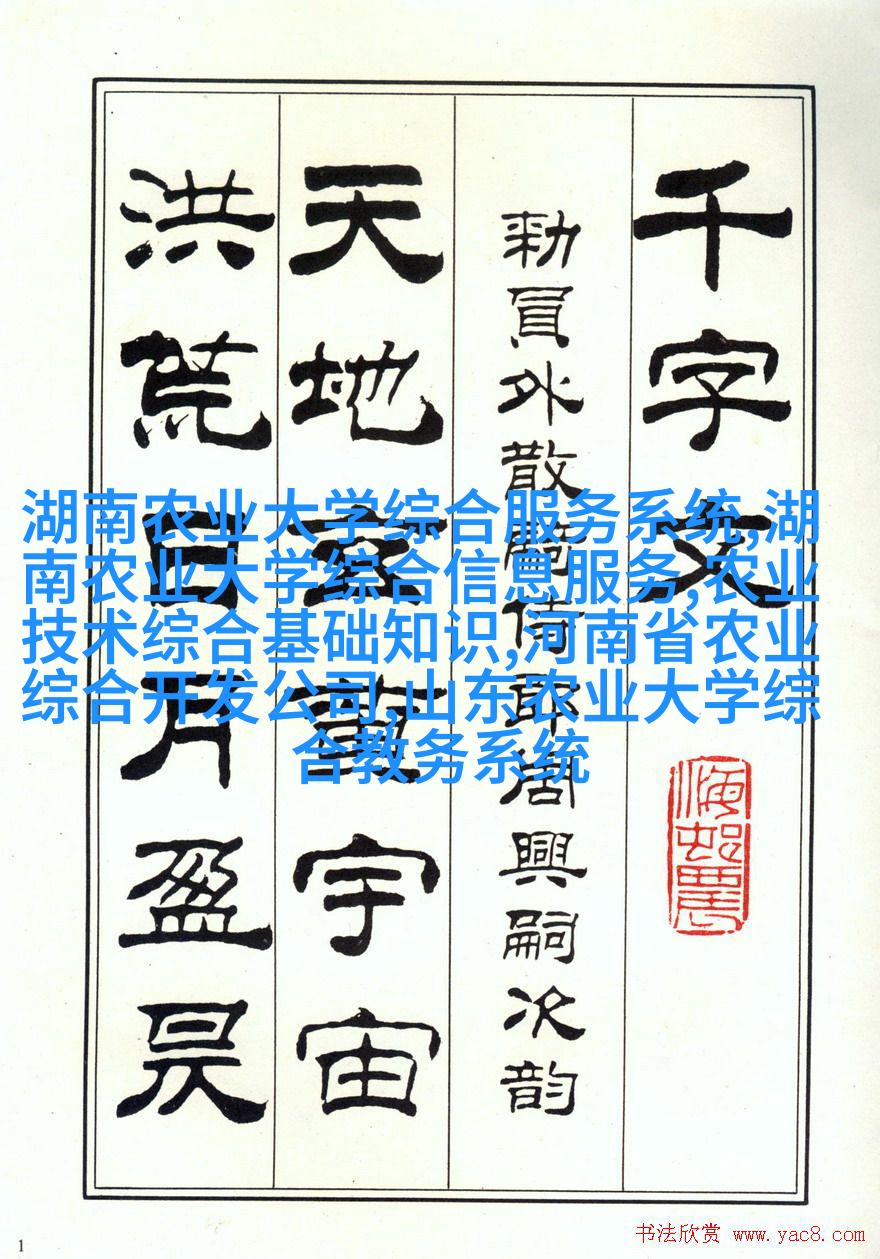 千字文
勑員外散騎侍郎周興嗣次韵
天地玄黃宇宙
洪荒日月盈昃
湖南农业大学综合服务系统,湖
南农业大学综合信息服务,农业
技术综合基础知识,河南省农业
综合开发公司,山东农业大学综
合教务系统
1
书法欣赏 www.yac8.com